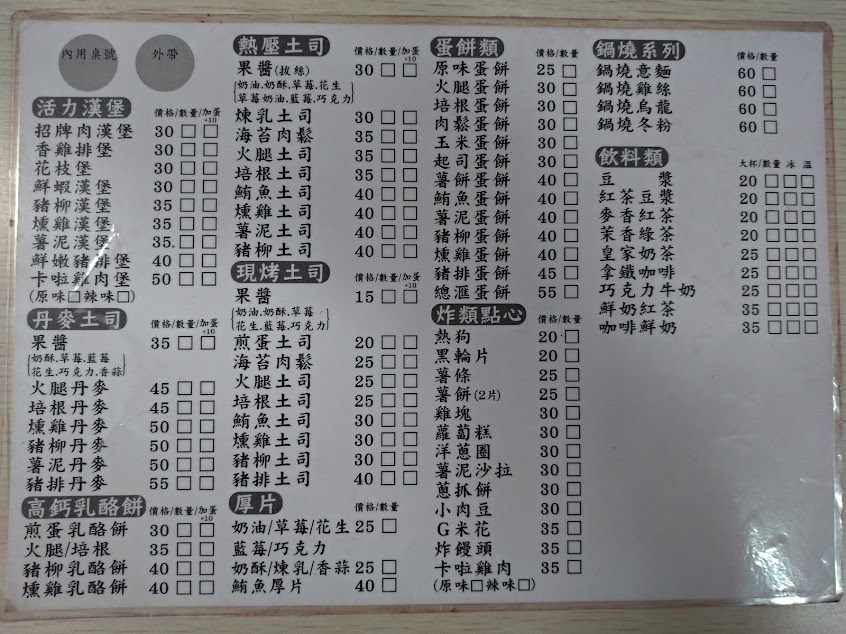 內用桌號
外帶
活力漢堡 價格/數量/加蛋 +10
招牌肉漢堡 30 □ □
香雞排堡 30 □ □
花枝堡 30 □ □
鮮蝦漢堡 30 □ □
豬柳漢堡 35 □ □
燻雞漢堡 35 □ □
薯泥漢堡 35 □ □
鮮嫩豬排堡 40 □ □
卡啦雞肉堡 50 □ □
(原味□辣味□)
丹麥土司 價格/數量/加蛋 +10
果醬 35 □ □
奶酥.草莓.藍莓
花生.巧克力.香蒜
火腿丹麥 45 □ □
培根丹麥 45 □ □
燻雞丹麥 50 □ □
豬柳丹麥 50 □ □
薯泥丹麥 50 □ □
豬排丹麥 55 □ □
高鈣乳酪餅 價格/數量/加蛋 +10
煎蛋乳酪餅 30 □ □
火腿/培根 35 □ □
豬柳乳酪餅 40 □ □
燻雞乳酪餅 40 □ □
熱壓土司 價格/數量/加蛋 +10
果醬(拔絲) 30 □ □
奶油.奶酥.草莓.花生
草莓奶油.藍莓.巧克力
煉乳土司 30 □ □
海苔肉鬆 35 □ □
火腿土司 35 □ □
培根土司 35 □ □
鮪魚土司 40 □ □
燻雞土司 40 □ □
薯泥土司 40 □ □
豬柳土司 40 □ □
現烤土司 價格/數量/加蛋 +10
果醬 15 □ □
奶油.奶酥.草莓
花生.藍莓.巧克力
煎蛋土司 20 □ □
海苔肉鬆 25 □ □
火腿土司 25 □ □
培根土司 25 □ □
鮪魚土司 30 □ □
燻雞土司 30 □ □
豬柳土司 30 □ □
豬排土司 40 □ □
厚片 價格/數量
奶油/草莓/花生 25 □
藍莓/巧克力
奶酥/煉乳/香蒜 25 □
鮪魚厚片 40 □
蛋餅類 價格/數量
原味蛋餅 25 □
火腿蛋餅 30 □
培根蛋餅 30 □
肉鬆蛋餅 30 □
玉米蛋餅 30 □
起司蛋餅 30 □
薯餅蛋餅 40 □
鮪魚蛋餅 40 □
薯泥蛋餅 40 □
豬柳蛋餅 40 □
燻雞蛋餅 40 □
豬排蛋餅 45 □
總滙蛋餅 55 □
炸類點心 價格/數量
熱狗 20 □
黑輪片 20 □
薯條 25 □
薯餅(2片) 25 □
雞塊 30 □
蘿蔔糕 30 □
洋蔥圈 30 □
薯泥沙拉 30 □
蔥抓餅 30 □
小肉豆 30 □
G米花 35 □
炸饅頭 35 □
卡啦雞肉 35 □
(原味□辣味□)
鍋燒系列 價格/數量
鍋燒意麵 60 □
鍋燒雞絲 60 □
鍋燒烏龍 60 □
鍋燒冬粉 60 □
飲料類 大杯/數量 冰 溫
豆漿 20 □□□
紅茶豆漿 20 □□□
麥香紅茶 20 □□□
茉香綠茶 20 □□□
皇家奶茶 25 □□□
拿鐵咖啡 25 □□□
巧克力牛奶 25 □□□
鮮奶紅茶 35 □□□
咖啡鮮奶 35 □□□